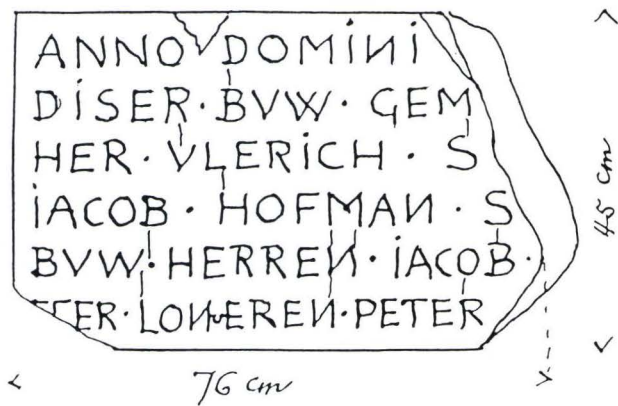 ANNO DOMINI
DISER · BVW · GEM
HER · VLERICH · S
IACOB · HOFMAN · S
BVW · HERREN · IACOB ·
TER · LONEREN · PETER
45 cm
76 cm